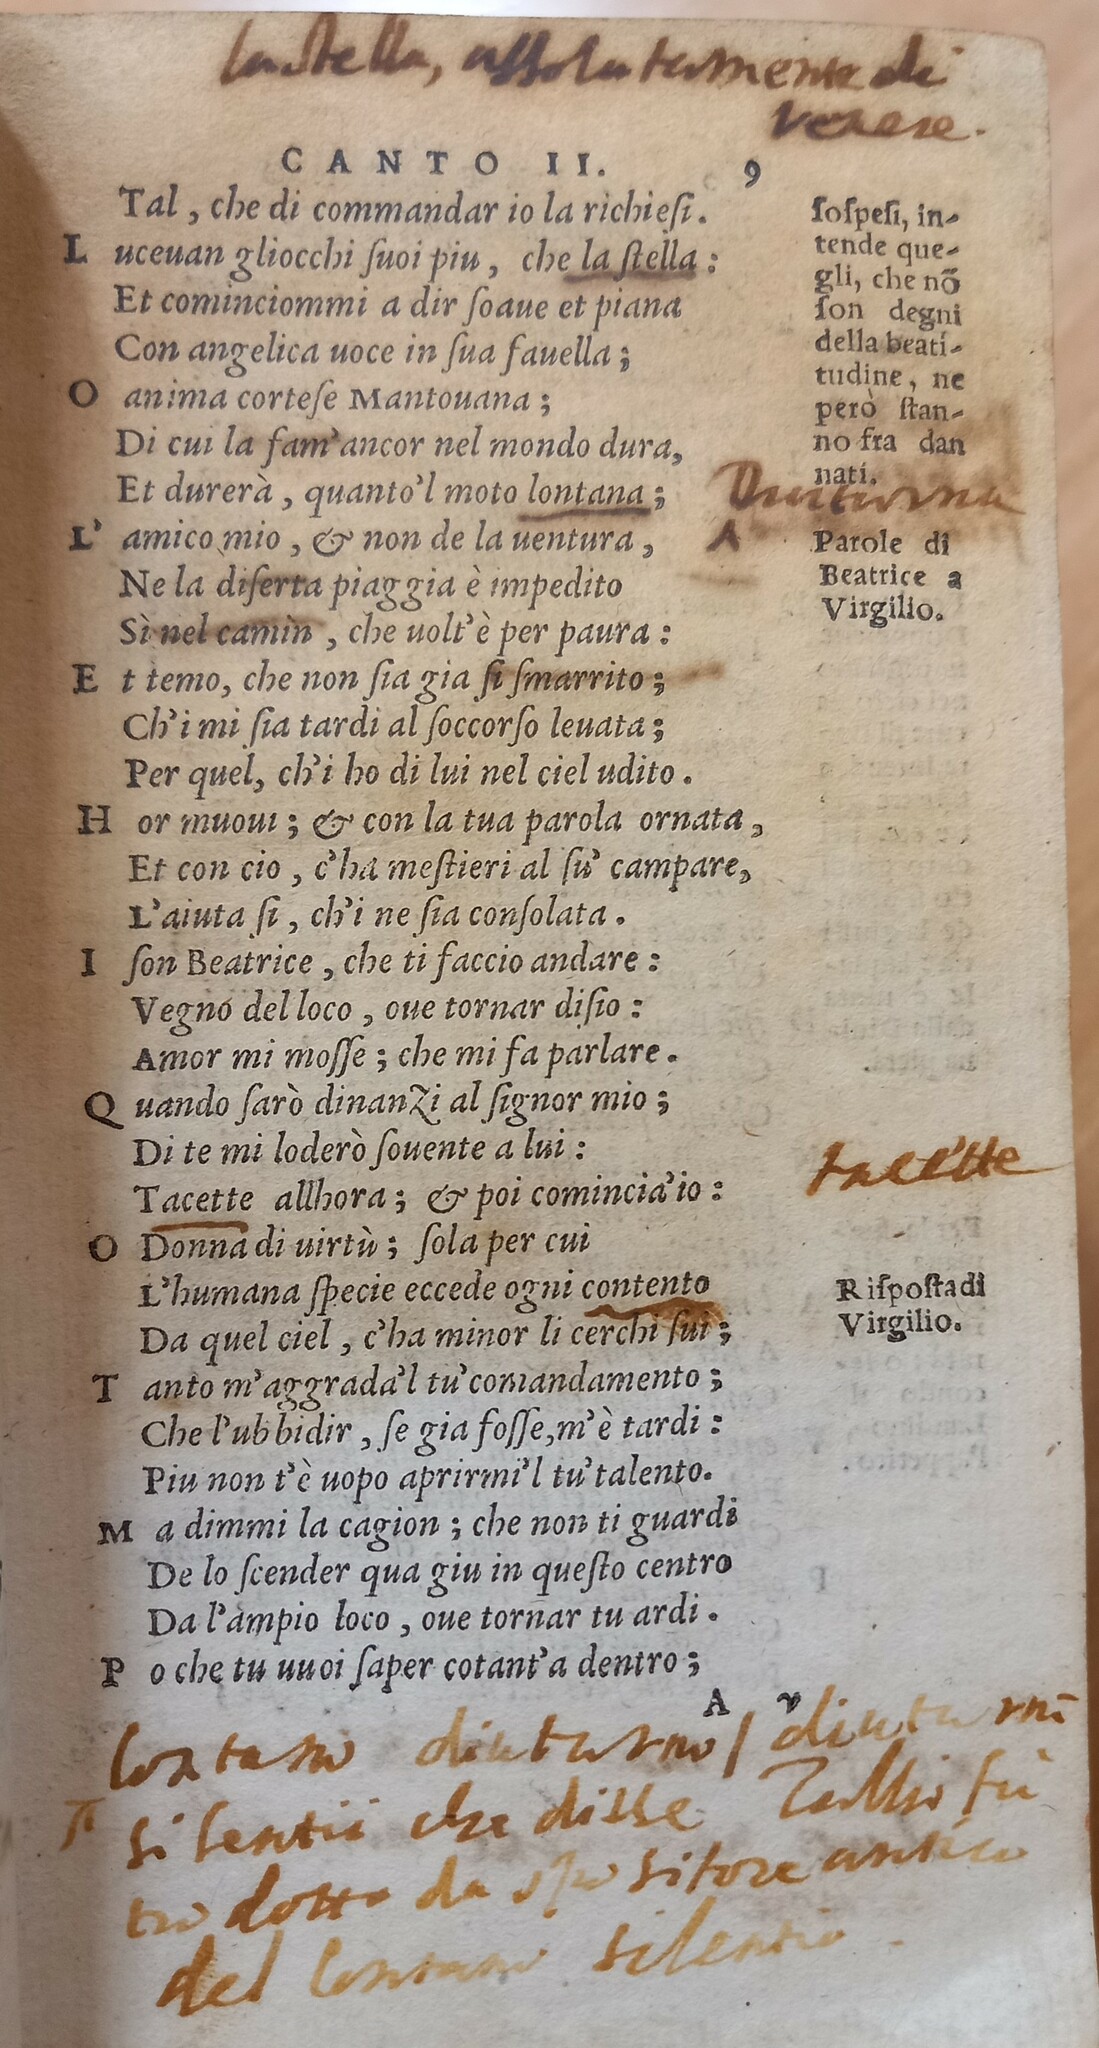 la stella, assolutamente di
venere.
CANTO II. 9
Tal, che di commandar io la richiesi.
Luceuan gliocchi ſuoi piu, che la ſtella:
Et cominciommi a dir ſoaue et piana
Con angelica uoce in ſua fauella;
O anima corteſe Mantouana;
Di cui la fam'ancor nel mondo dura,
Et durerà, quanto'l moto lontana;
L'amico mio, & non de la uentura,
Ne la diſerta piaggia è impedito
Sì nel camin, che uolt'è per paura:
Et temo, che non ſia gia ſi ſmarrito;
Ch'i mi ſia tardi al ſoccorſo leuata;
Per quel, ch'i ho di lui nel ciel udito.
Hor muoui; & con la tua parola ornata,
Et con cio, c'ha meſtieri al ſu' campare,
L'aiuta ſi, ch'i ne ſia conſolata.
I ſon Beatrice, che ti faccio andare:
Vegno del loco, oue tornar diſio:
Amor mi moſſe; che mi fa parlare.
Quando ſarò dinanzi al ſignor mio;
Di te mi loderò ſouente a lui:
Tacette allhora; & poi comincia'io:
O Donna di uirtù; ſola per cui
L'humana ſpecie eccede ogni contento
Da quel ciel, c'ha minor li cerchi ſui;
Tanto m'aggrada'l tu'comandamento;
Che l'ubbidir, ſe gia foſſe, m'è tardi:
Piu non t'è uopo aprirmi'l tu'talento.
Ma dimmi la cagion; che non ti guardi
De lo ſcender qua giu in queſto centro
Da l'ampio loco, oue tornar tu ardi.
Po che tu uuoi ſaper cotant'a dentro;
A v
ſoſpeſi, in-
tende que-
gli, che nõ
ſon degni
della beati-
tudine, ne
però ſtan-
no fra dan
nati.
Diuturna
A
Parole di
Beatrice a
Virgilio.
tacette
Riſpoſta di
Virgilio.
lontano diuturno / diuturni
silentii che disse Tullio fù
tradotto da spositore antico
del lontano silentio.